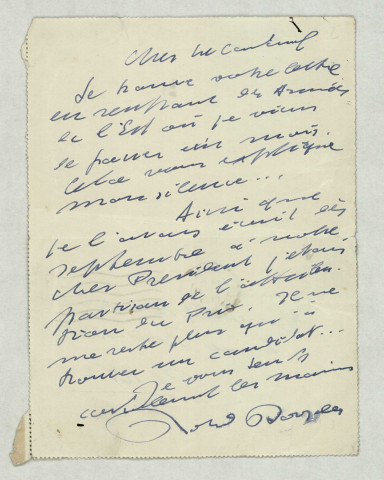 Cher
Je trouve votre lettre
en rentrant des Armées
de l'Est où je viens
de passer un mois.
Cela vous explique
mon silence...
Ainsi que
je l'avais écrit dès
septembre à notre
cher Président j'étais
partisan de l'attribu-
tion du Prix. Il ne
me reste plus qu'à
trouver un candidat...
Je vous serre
cordialement les mains
Roland Dorgelès